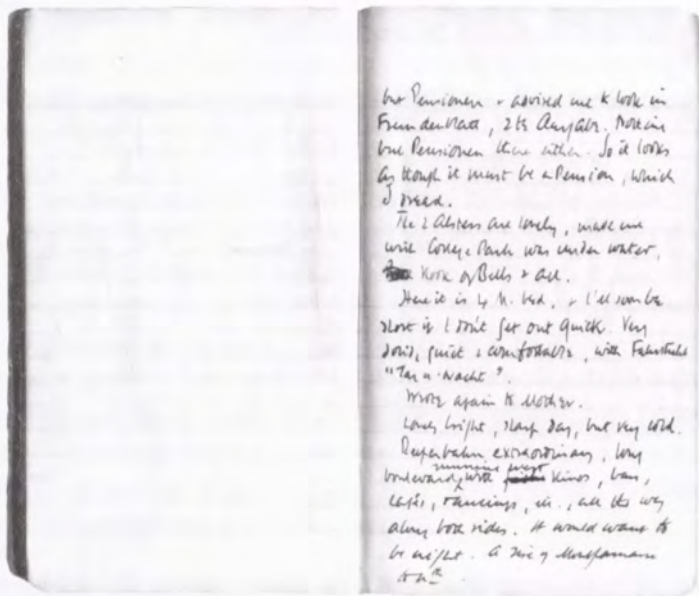 but Pensionen & advised me to look in
Fremdenblatt, 2te Ausgabe. Nothing
but Pensionen there either. So it looks
as though it must be a Pension, which
I dread.
The 2 Alsters are lovely, made me
wish College Park was under water,
Kook of Bells & all.
Here it is 4 M. bed, & I'll soon be
short if I don't get out quick. Very
good, quiet & comfortable, with Fahrstuhl
"Tag u. Nacht".
Wrote again to Mother.
Lovely bright, sharp day, but very cold.
Reeperbahn extraordinary, long
boulevard running west with Kinos, bars,
cafés, dancings, etc., all the way
along both sides. It would want to
be night. A sire of Montparnasse
to nth